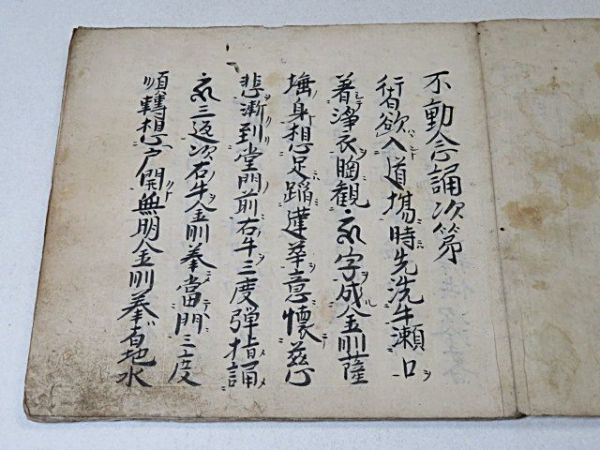 不動念誦次第
行者欲入道場時先洗手瀬口
着淨衣胸觀字成金剛薩
埵身想足蹈蓮華意懷慈
悲漸到堂門前右手三度彈指誦
三返次右手金剛拳當門三度
順轉想戶開無明金剛拳者地水